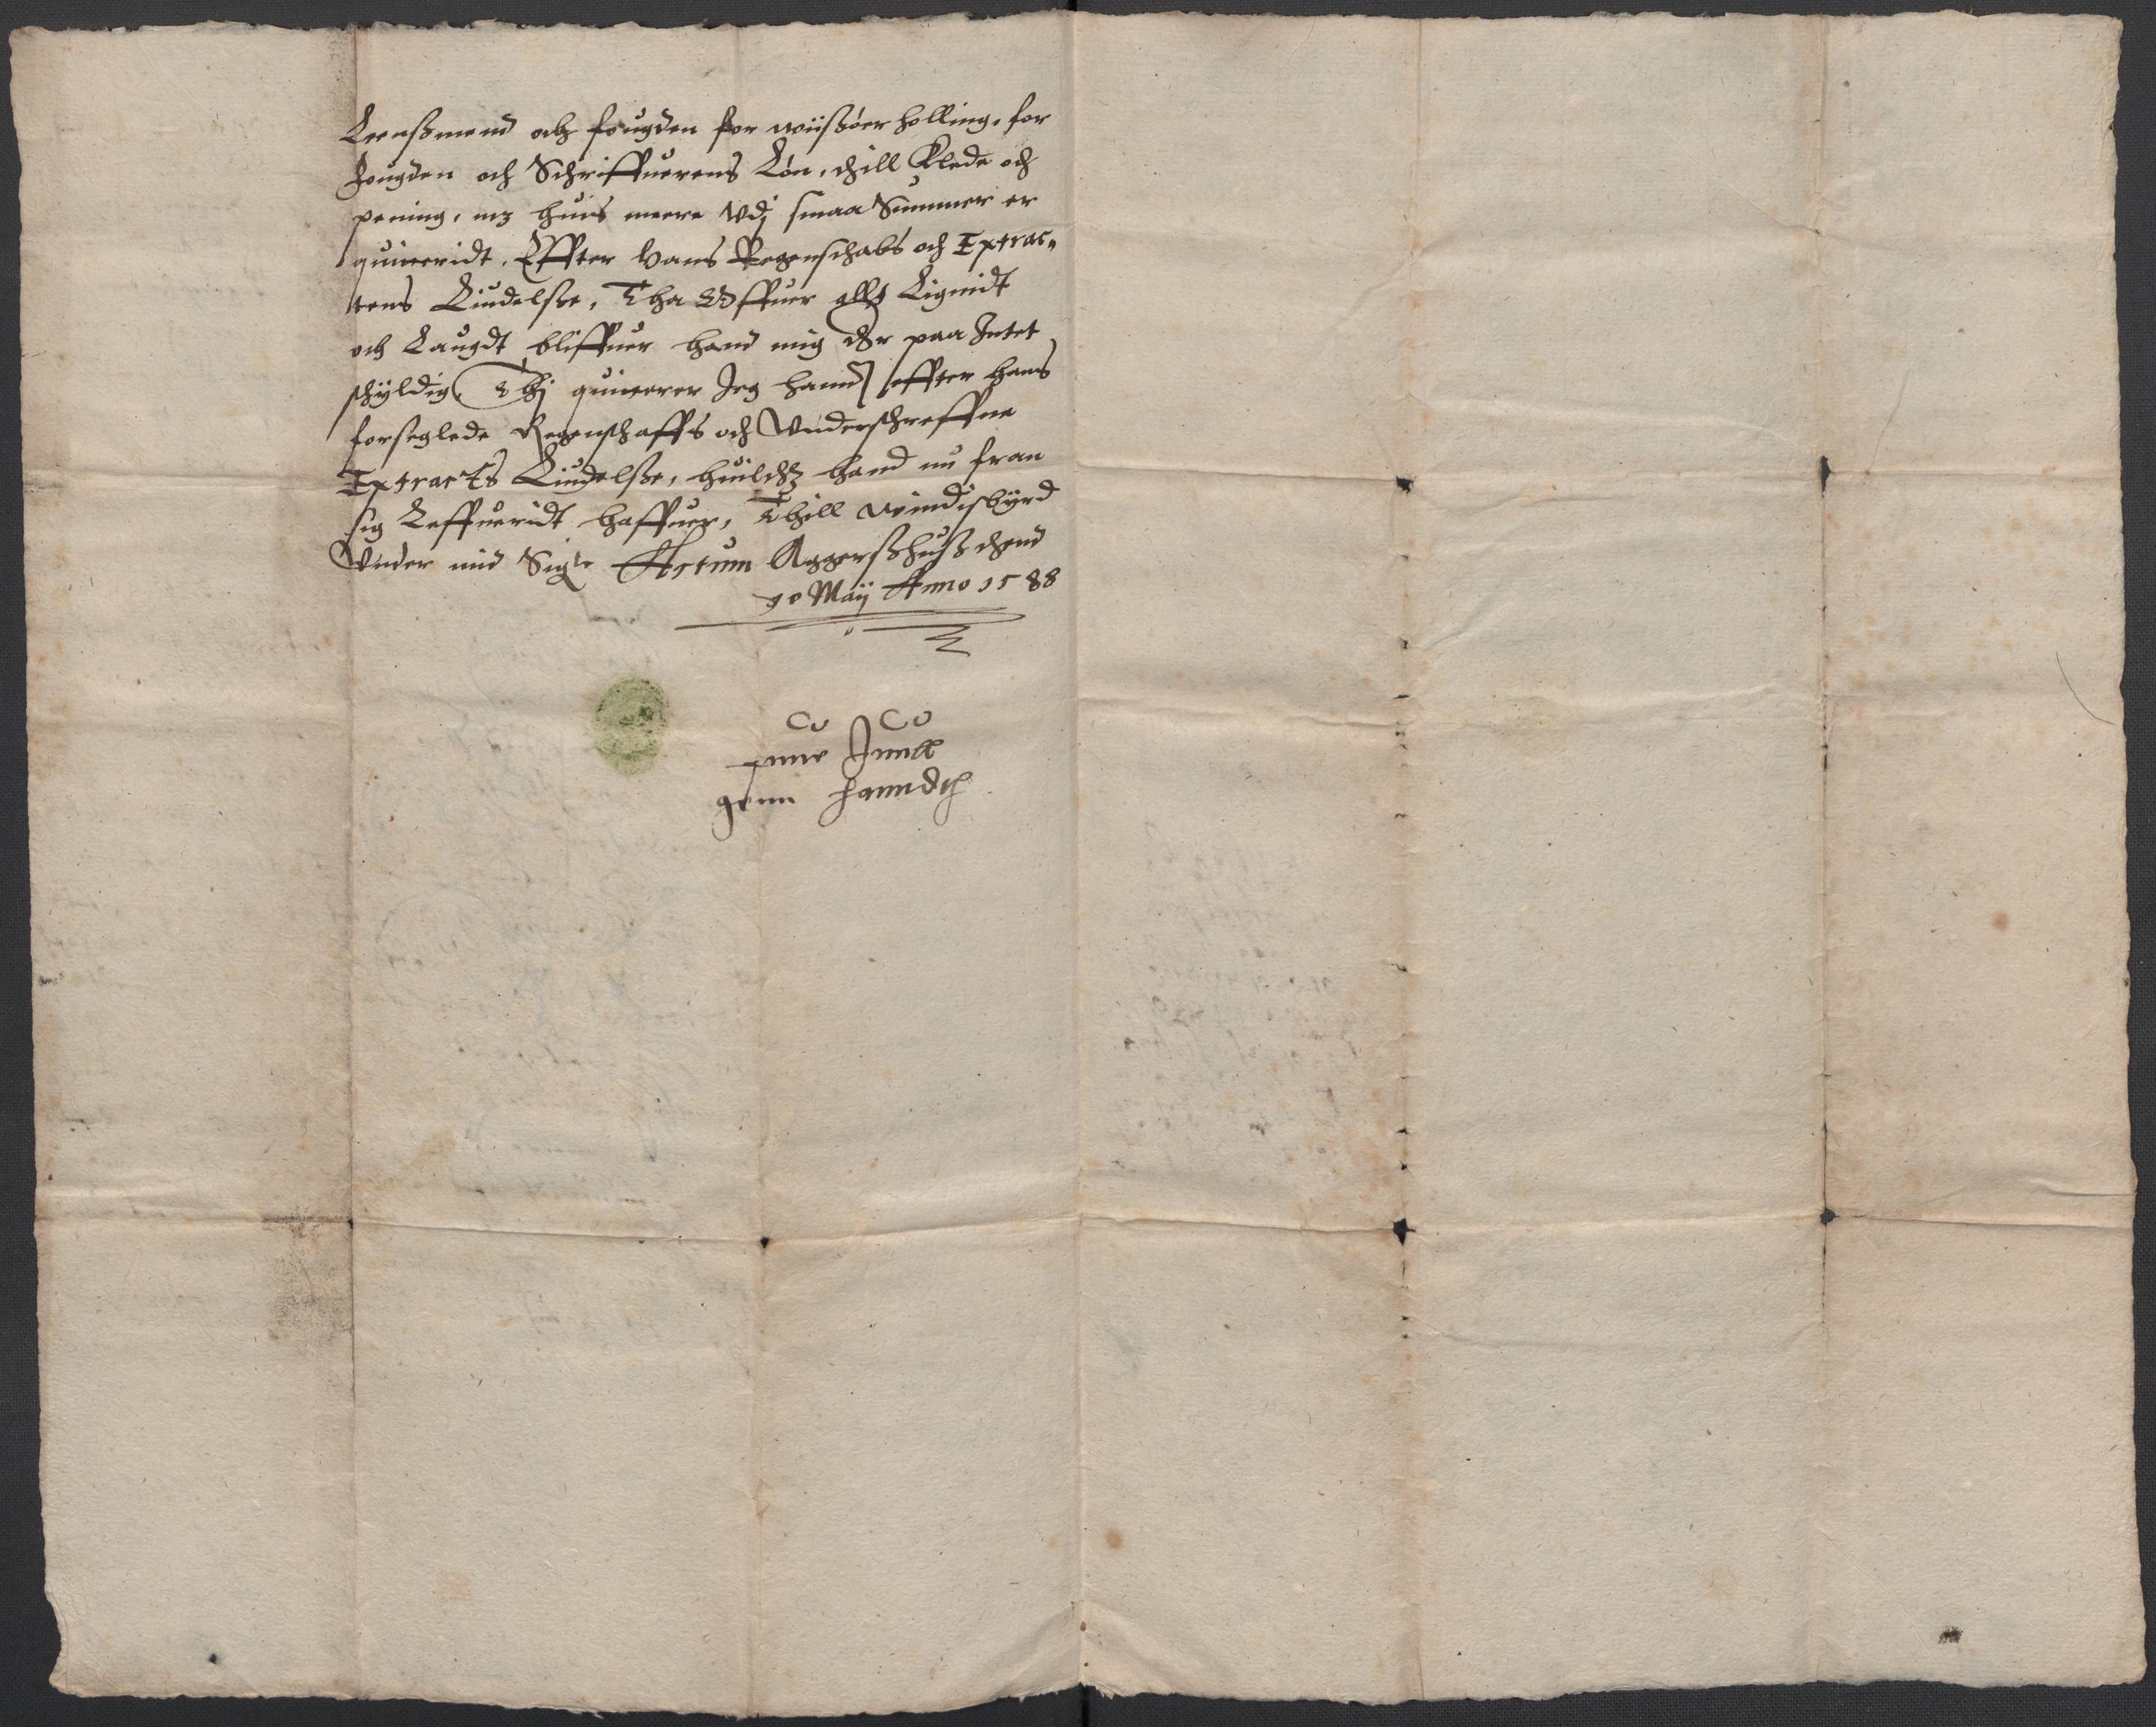 Lensmend och fougden for wiissøer holling, for
fougden och Schriffuerens Løn, thill Klede och
pening, mz huis meere Vdj smaa Summer er
quiteridt, Effter hans Regenschabs och Extrac„
tens Liudelsse, Tha Offuer alt Lignidt
och Laugdt bliffuer hand mig der paa Intet
schyldig, Thj quiterer Jeg hannd effter hans
forseglede Regenschaffs och Vnderschreffne
Extracts Liudelsse, huilchz hand nu fran
sig Leffueridt haffuer, Thill windisbyrd
Vnder mid Sigle Actum Aggershuss thend
30 Maij Anno 1588
pnne Juuell
genn hanndtt